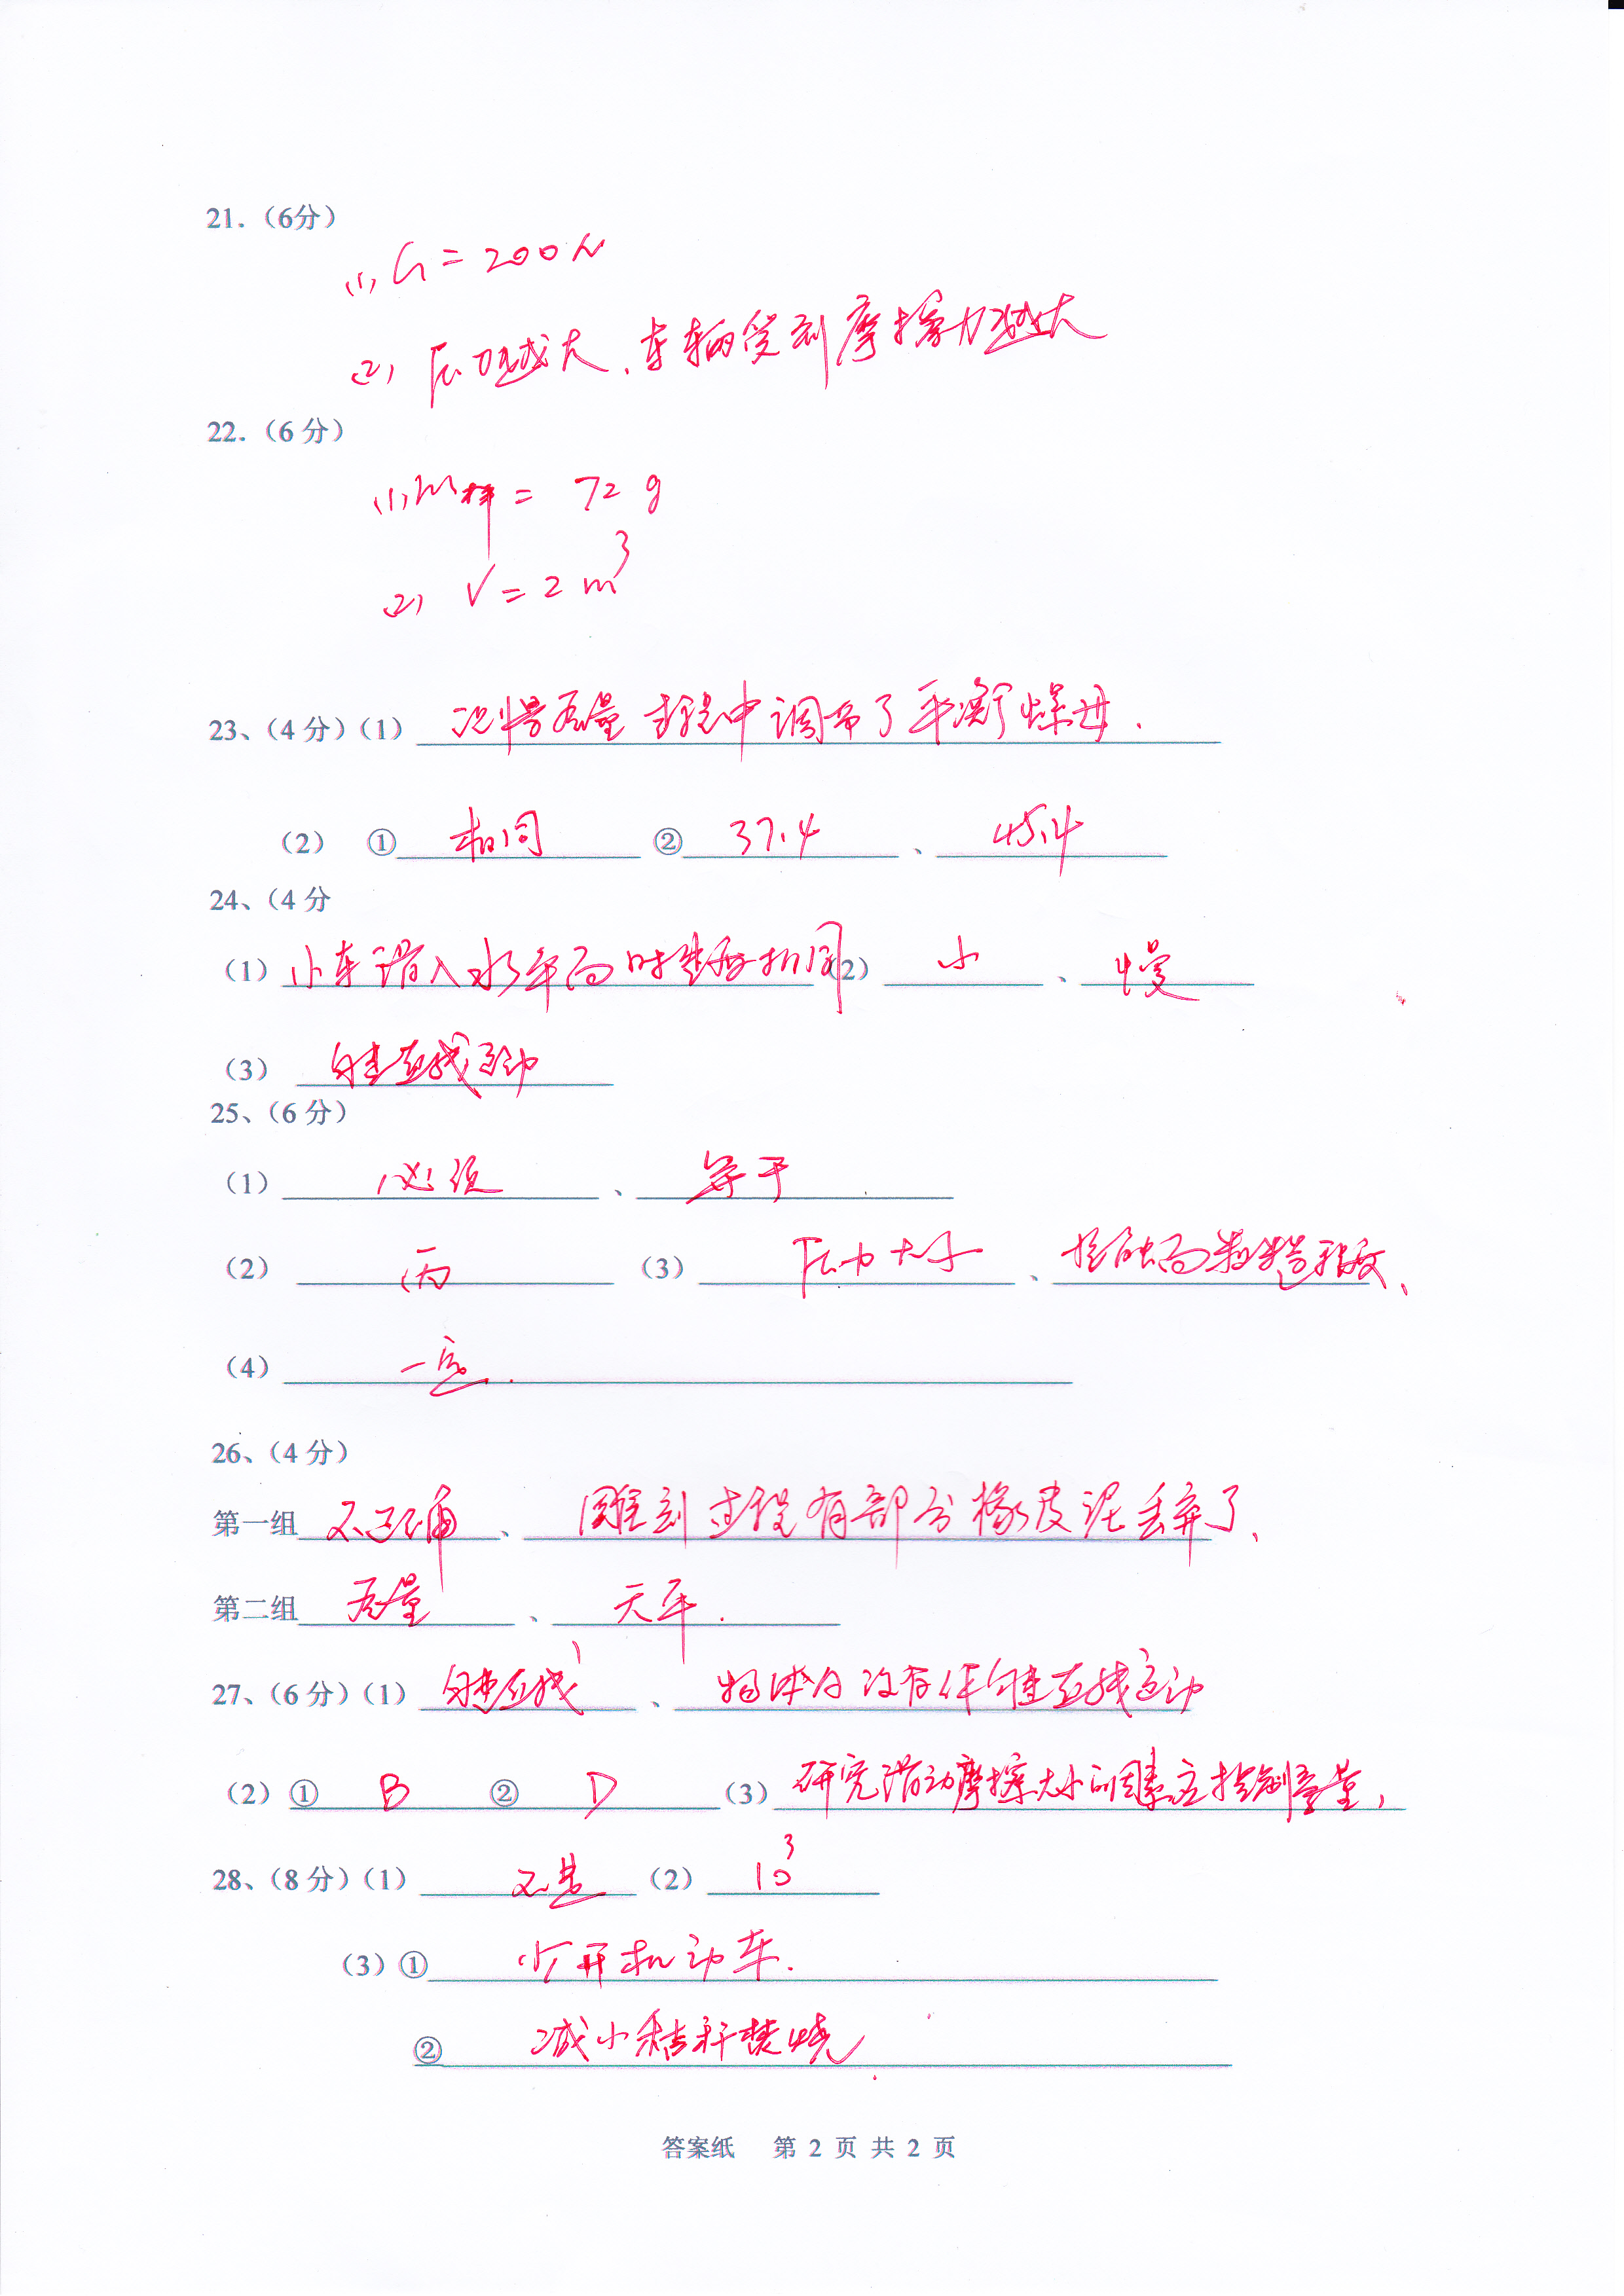 21.（6分）
(1) G = 200N
(2) 压力越大，车辆受到摩擦力越大
22.（6 分）
(1) m样 = 72 g
(2) V = 2 m³
23、（4 分）（1）测量质量过程中调节了平衡螺母.
（2） ① 相同 ② 37.4 、 45.4
24、（4 分
（1）小车滑入水平面时速度相同（2） 小 、 慢
（3） 匀速直线运动
25、（6 分）
（1） 必须 、 等于
（2） 丙 （3） 压力大小 、接触面粗糙程度、
（4） 一定.
26、（4 分）
第一组 不正确 、 雕刻过程有部分橡皮泥丢弃了、
第二组 质量 、 天平.
27、（6 分）（1） 匀速直线 、 物体没有作匀速直线运动
（2）① B ② D （3）研究滑动摩擦大小的因素应控制变量,
28、（8 分）（1） 不是 （2） 10³
（3）① 少开机动车.
② 减小秸秆焚烧.
答案纸 第 2 页 共 2 页